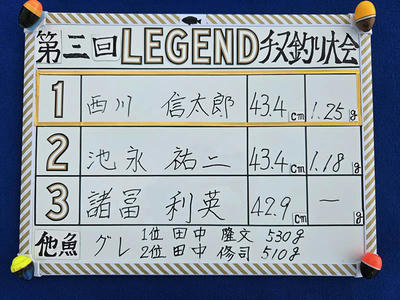 第三回LEGENDチヌ釣り大会
1 西川 信太郎 43.4cm 1.25g
2 池永 祐二 43.4cm 1.18g
3 諸冨 利英 42.9cm ーg
他魚 グレ 1位 田中 隆文 530g
2位 田中 修司 510g